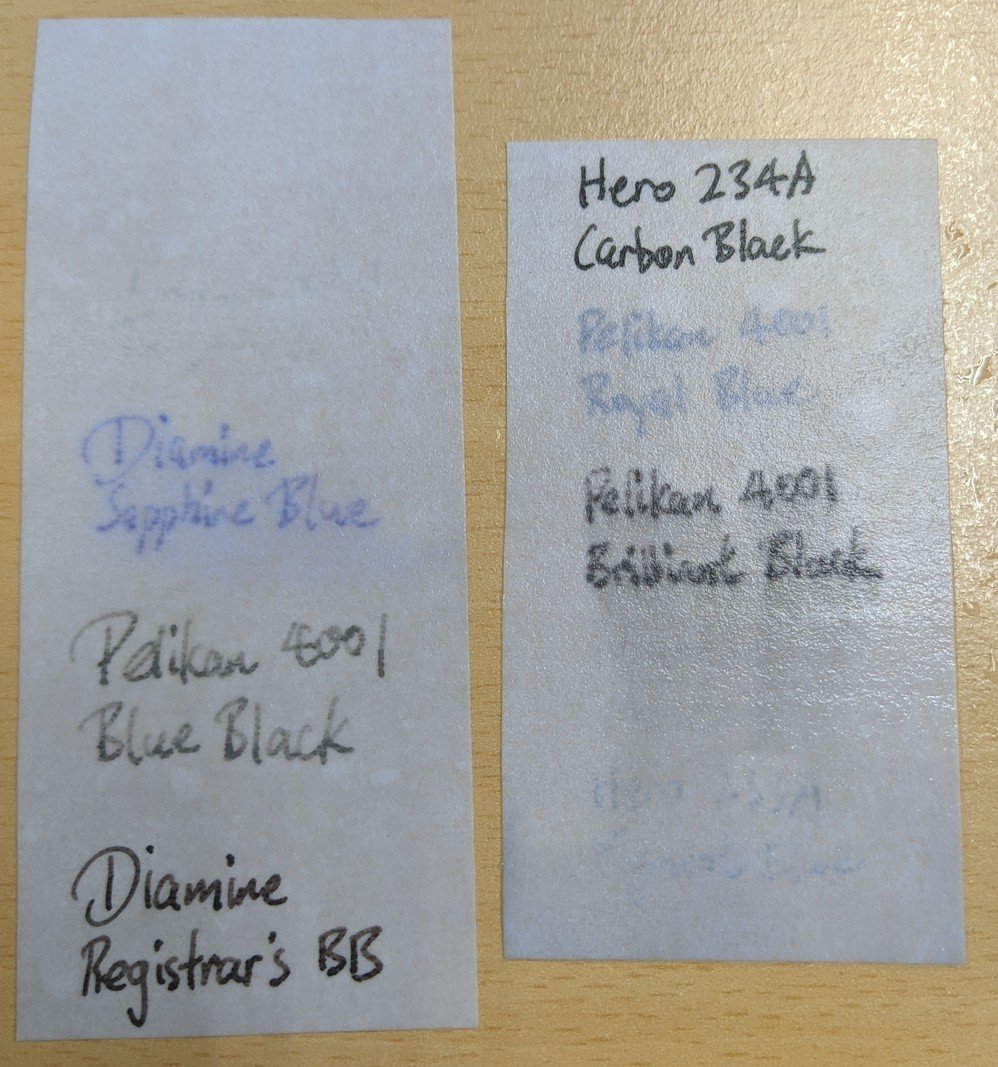 Diamine
Sapphire Blue
Pelikan 4001
Blue Black
Diamine
Registrar's BB
Hero 234A
Carbon Black
Pelikan 4001
Royal Blue
Pelikan 4001
Brilliant Black
Hero
Blue